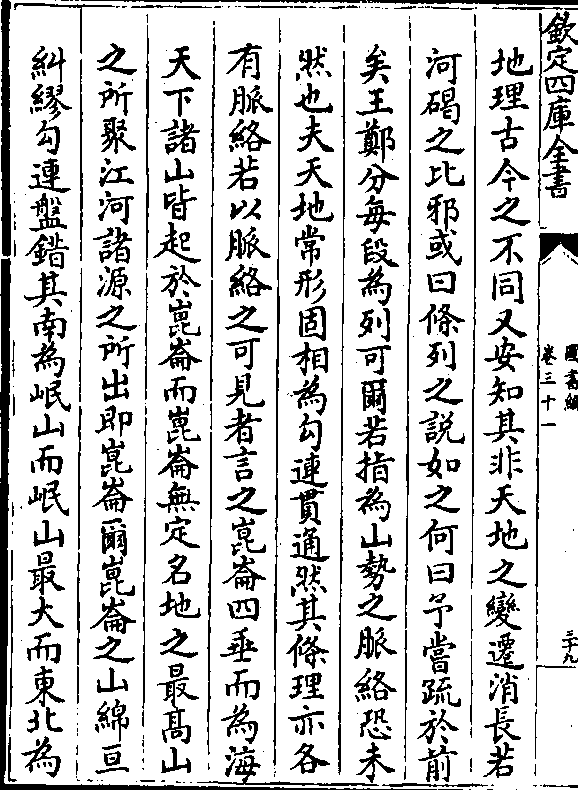 欽定四庫全書
圖書編
卷三十一
三十九
地理古今之不同又安知其非天地之變遷消長若
河碣之比邪或曰條列之說如之何曰予嘗疏於前
矣王鄭分每段為列可爾若指為山勢之脈絡恐未
然也夫天地常形固相為勾連貫通然其條理亦各
有脈絡若以脈絡之可見者言之崑崙四垂而為海
天下諸山皆起於崑崙而崑崙無定名地之最高山
之所聚江河諸源之所出即崑崙爾崑崙之山綿亘
糾繆勾連盤錯其南為岷山而岷山最大而東北為